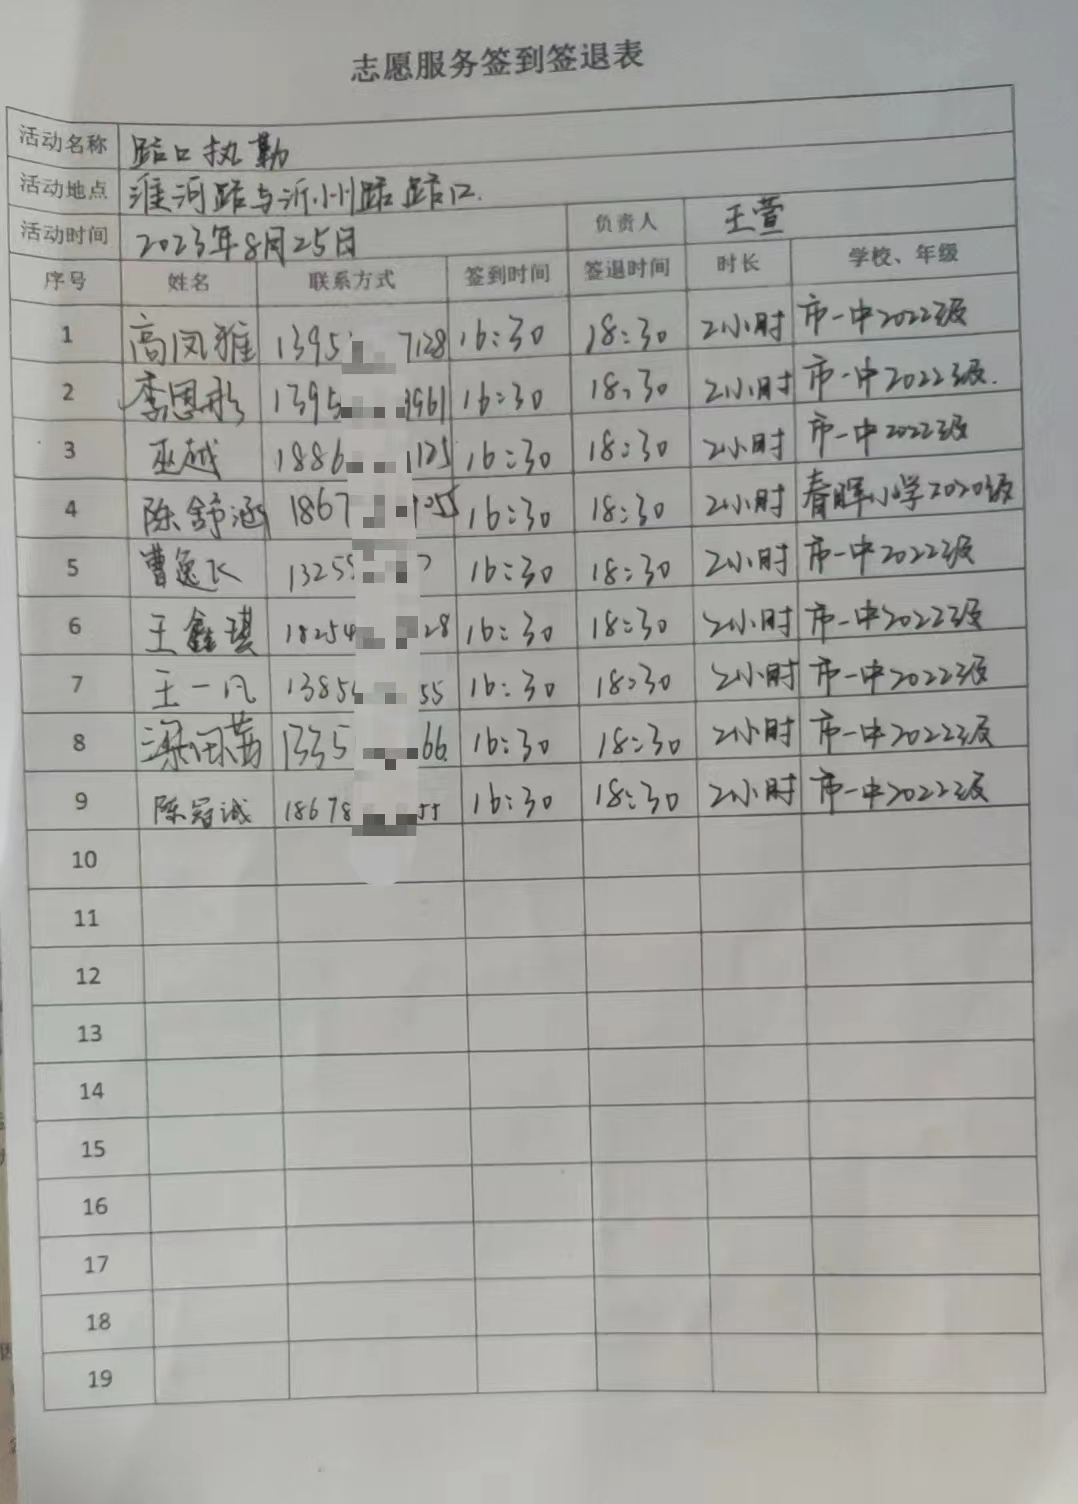 志愿服务签到签退表
活动名称 路口执勤
活动地点 淮河路与沂州路路口.
活动时间 2023年8月25日 负责人 王萱
序号 姓名 联系方式 签到时间 签退时间 时长 学校、年级
1 高凤雅 1395 7128 16:30 18:30 2小时 市一中2022级
2 李恩彤 1395 3961 16:30 18:30 2小时 市一中2022级.
3 巫越 1886 1125 16:30 18:30 2小时 市一中2022级
4 陈舒涵 1867 1055 16:30 18:30 2小时 春晖小学2020级
5 曹逸飞 13255 7 16:30 18:30 2小时 市一中2022级
6 王鑫琪 18254 28 16:30 18:30 2小时 市一中2022级
7 王一凡 1385 55 16:30 18:30 2小时 市一中2022级
8 梁闰茜 1335 66. 16:30 18:30 2小时 市一中2022级
9 陈冠诚 18678 55 16:30 18:30 2小时 市一中2022级
10
11
12
13
14
15
16
17
18
19